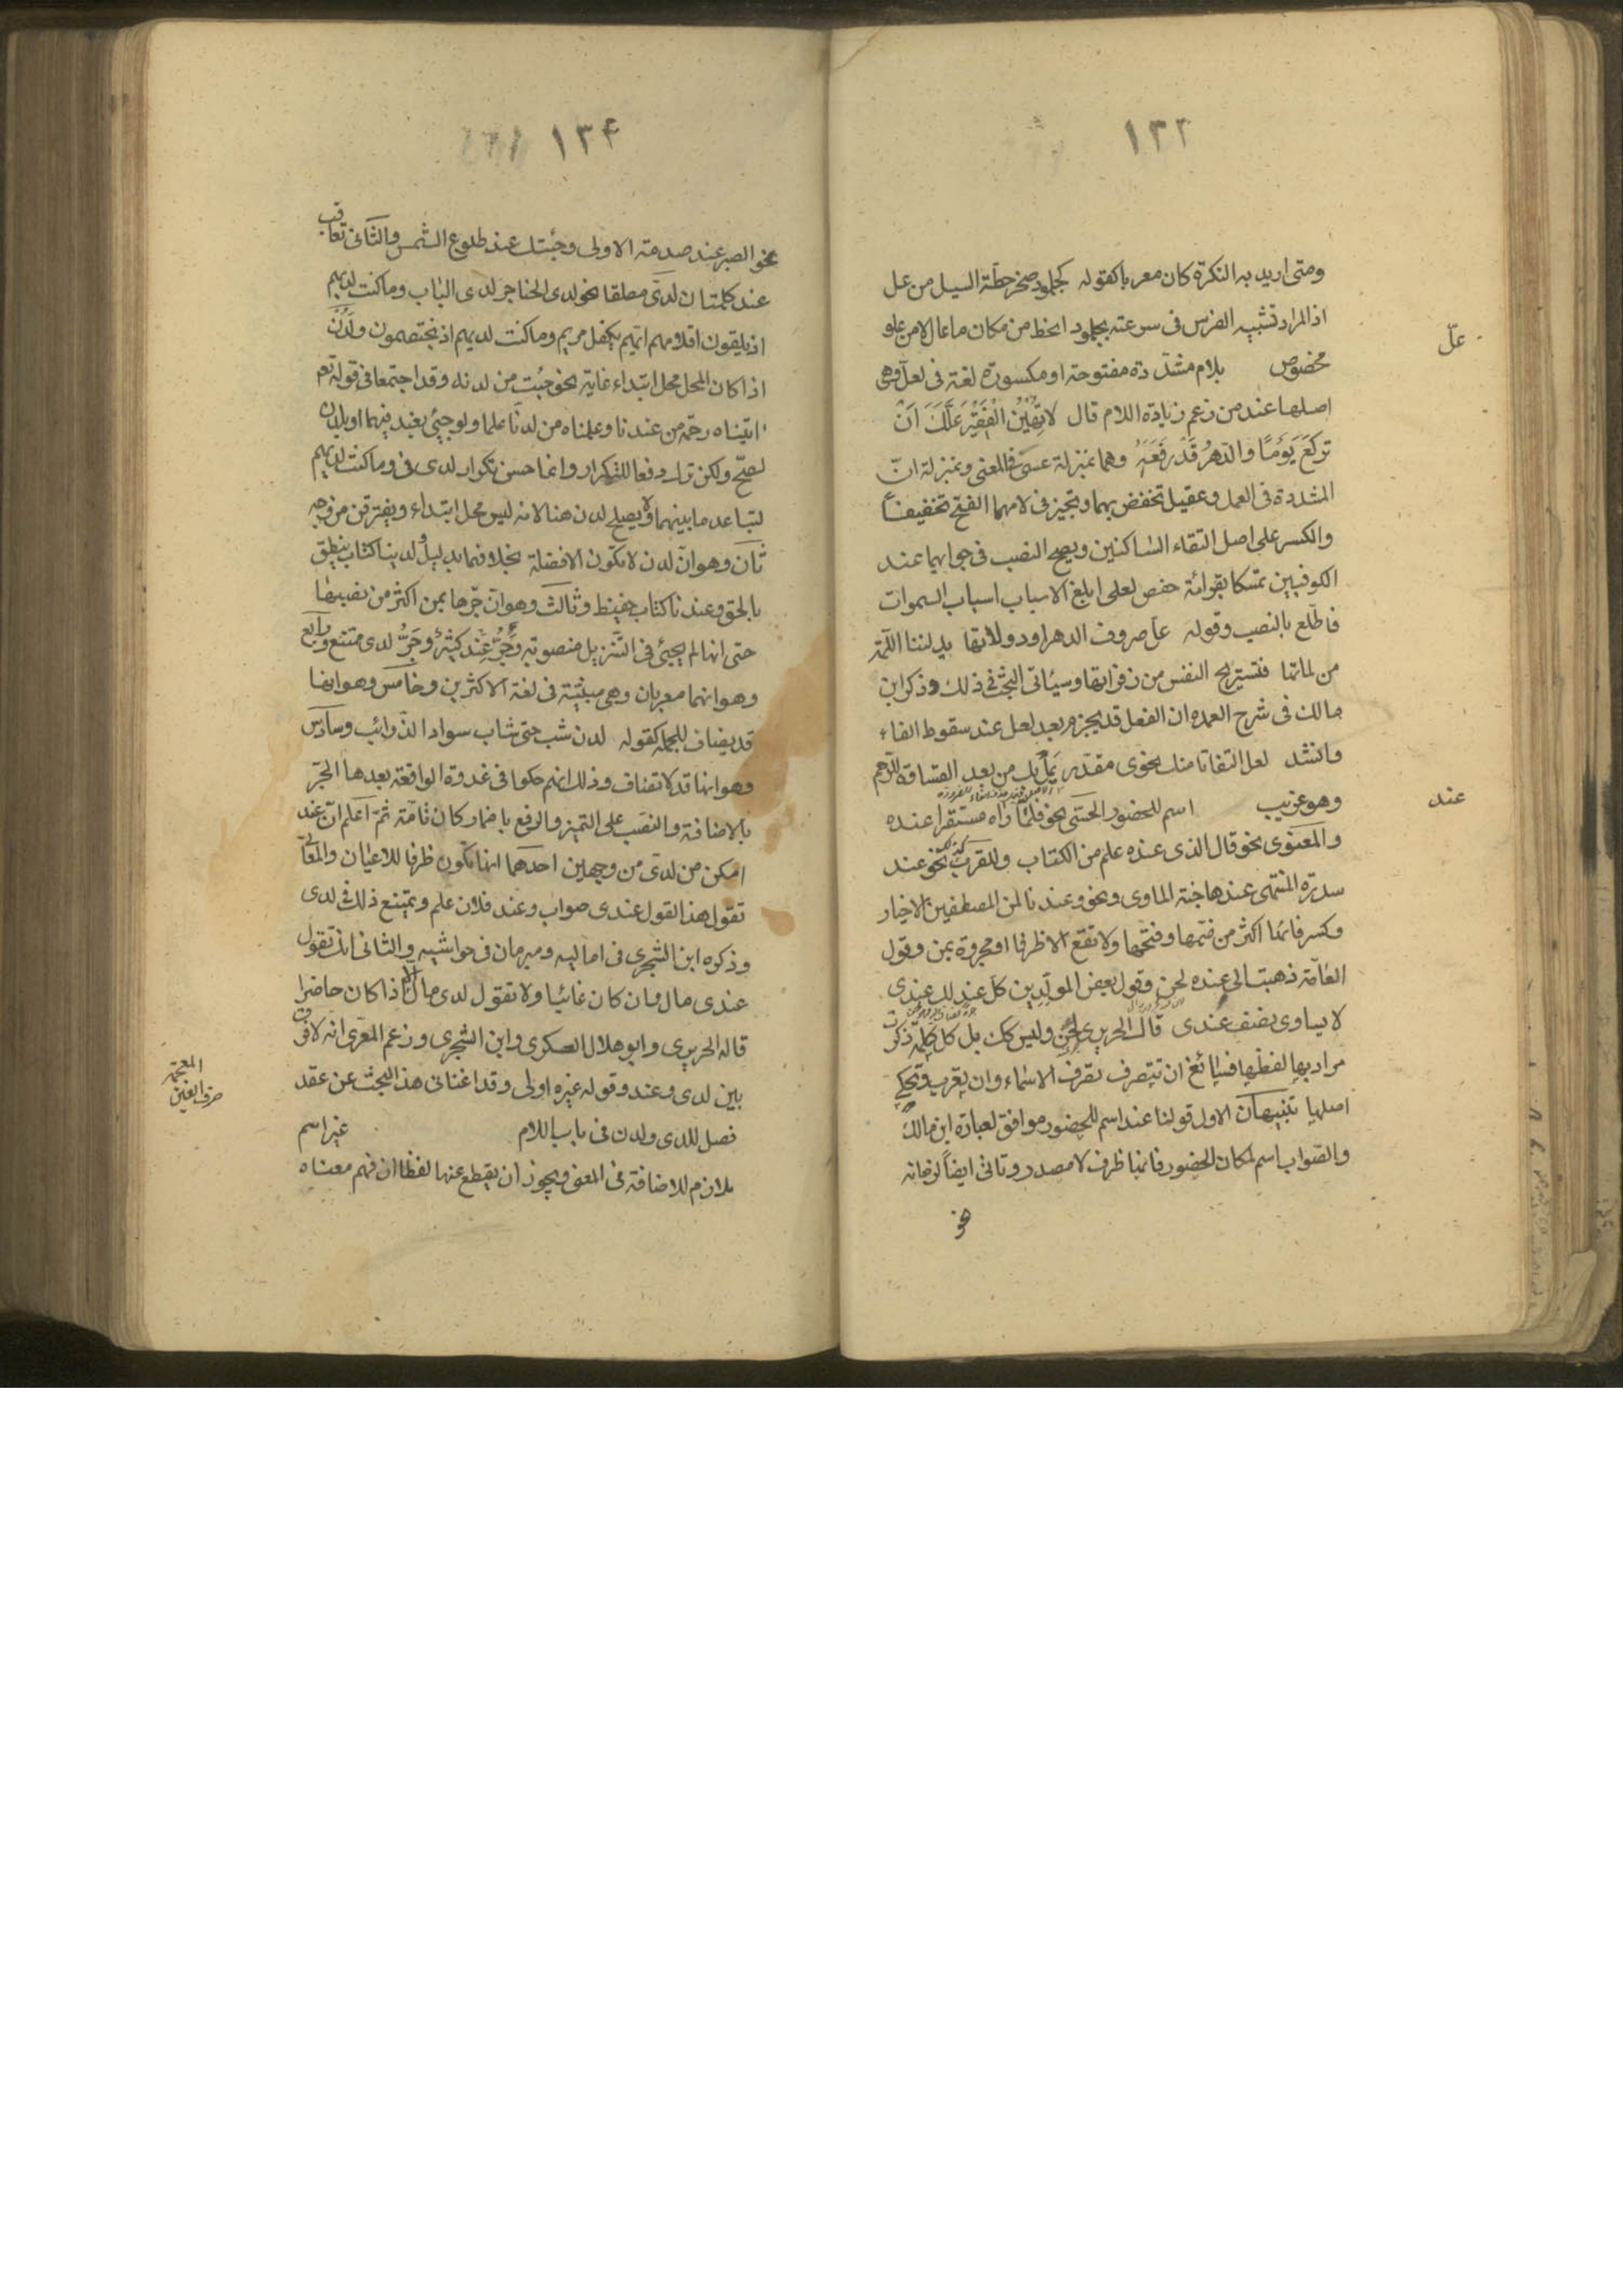 ١٣٣
ومتى اريد به النكرة كان معربا كقوله كجلمود صخر حطّه السيل من عل
اذ المراد تشبيه الفرس فى سرعته بجلمود انحط من مكان ما عال لا من علو
علّ
مخصوص بلام مشدّدة مفتوحة او مكسورة لغة فى لعلّ وهى
اصلها عند من زعم زيادة اللام قال لا تهين الفقير علّك ان
تركع يومًا والدهر قد رفعه وهما بمنزلة عسى فى المعنى وبمنزلة انّ
المشددة فى العمل وعقيل تخفض بهما وتجيز فى لامهما الفتح تخفيفاً
والكسر على اصل التقاء الساكنين ويصح النصب فى جوابهما عند
الكوفيين تمسكا بقرائة حفص لعلى ابلغ الاسباب اسباب السموات
فاطّلع بالنصب وقوله علّ صروف الدهر او دولاتها يدلننا اللمّة
من لماتها فتستريح النفس من زفراتها وسيأتى البحث فى ذلك وذكر ابن
مالك فى شرح العمده ان الفعل قد يجزم بعد لعل عند سقوط الفاء
وانشد لعل التفاتا منك نحوى مقدّر يمل بك من بعد القساوة للرحم
عند
وهو غريب اسم للحضور الحسّى نحو فلمّا راه مستقرا عنده
والمعنوى نحو قال الذى عنده علم من الكتاب وللقرب كذلك نحو عند
سدرة المنتهى عندها جنة الماوى ونحو وعندنا لمن المصطفين الاخيار
وكسر فائها اكثر من ضمّها وفتحها ولا تقع الا ظرفا او مجرورة بمن وقول
العامّة ذهبت الى عنده لحن وقول بعض المولّدين كل عند لك عندى
لا يساوى نصف عندى قال الحريرى لحن وليس كك بل كل كلمة ذكرت
مراد بها لفظها فسائغ ان تتصرف تصرف الاسماء وان يعرب وتحكى
اصلها تنبيهان الاول قولنا عند اسم للحضور موافق لعبارة ابن مالك
والصّواب اسم لمكان الحضور فانها ظرف لا مصدر وتاتى ايضاً لزمانه
نحو
١٣۴
نحو الصبر عند صدمة الاولى وجئتك عند طلوع الشمس والثانى تعاقب
عند كلمتان لدىّ مطلقا نحو لدى الحناجر لدى الباب وما كنت لديهم
اذ يلقون اقلامهم ايّهم يكفل مريم وما كنت لديهم اذ يختصمون ولدن
اذا كان المحل محل ابتداء غاية نحو جئت من لدنه وقد اجتمعا فى قوله تعم
اتيناه رحمة من عندنا وعلمناه من لدنّا علما ولو جيئ بعند فيهما او بلدن
لصحّ ولكن ترك دفعا للتكرار وانما حسن تكرار لدى فى وما كنت لديهم
لتباعد ما بينهما ولا يصلح لدن هنا لانه ليس محل ابتداء ويفترقن من وجه
ثان وهو انّ لدن لا تكون الا فضلة بخلافهما بدليل ولدينا كتاب ينطق
بالحق وعندنا كتاب حفيظ وثالث وهو ان جرّها بمن اكثر من نصبها
حتى انها لم تجيئ فى التنزيل منصوبة وجرّ عند كثير وجرّ لدى ممتنع ورابع
وهو انهما معربان وهى مبنيّة فى لغة الاكثرين وخامس وهو انها
قد يضاف للجملة كقوله لدن شب حتى شاب سواد الذوائب وسادس
وهو انها قد لا تضاف وذلك انهم حكوا فى غدوة الواقعة بعدها الجرّ
بالاضافة والنصب على التميز والرفع باضمار كان تامّة ثمّ اعلم انّ عند
امكن من لدى من وجهين احدهما انها تكون ظرفا للاعيان والمعانى
تقول هذا القول عندى صواب وعند فلان علم ويمتنع ذلك فى لدى
وذكره ابن الشجرى فى اماليه ومبرمان فى حواشيه والثانى انك تقول
عندى مال وان كان غائبا ولا تقول لدى مال الا اذا كان حاضرا
قاله الحريرى وابو هلال العسكرى وابن الشجرى وزعم المعرّى انه لا فرق
بين لدى وعند وقوله غيره اولى وقد اغنانى هذا البحث عن عقد
حرف الغين
المعجمة
فصل للدى ولدن فى باب اللام غير اسم
ملازم للاضافة فى المعنى ويجوز ان يقطع عنها لفظا ان فهم معناه